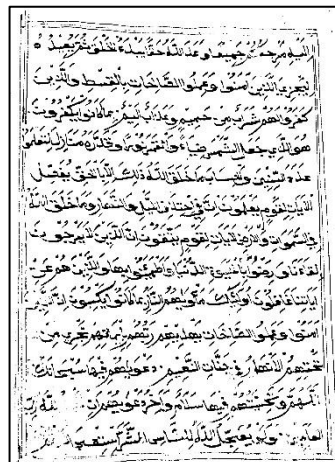 اليه مرجعكم جميعا وعد الله حقا انه يبدؤ الخلق ثم يعيده
ليجزي الذين آمنوا وعملوا الصالحات بالقسط والذين
كفروا لهم شراب من حميم وعذاب اليم بما كانوا يكفرون
هو الذي جعل الشمس ضياء والقمر نورا وقدره منازل لتعلموا
عدد السنين والحساب ما خلق الله ذلك الا بالحق يفصل
الآيات لقوم يعلمون ان في اختلاف الليل والنهار وما خلق الله
في السموات والارض لآيات لقوم يتقون ان الذين لا يرجون
لقاءنا ورضوا بالحيوة الدنيا واطمأنوا بها والذين هم عن
آياتنا غافلون اولئك مأويهم النار بما كانوا يكسبون ان الذين
آمنوا وعملوا الصالحات يهديهم ربهم بايمانهم تجري من
تحتهم الانهار في جنات النعيم دعويهم فيها سبحانك
اللهم وتحيتهم فيها سلام وآخر دعويهم ان لله رب
العالمين ولو يعجل الله للناس الشر استعجالهم